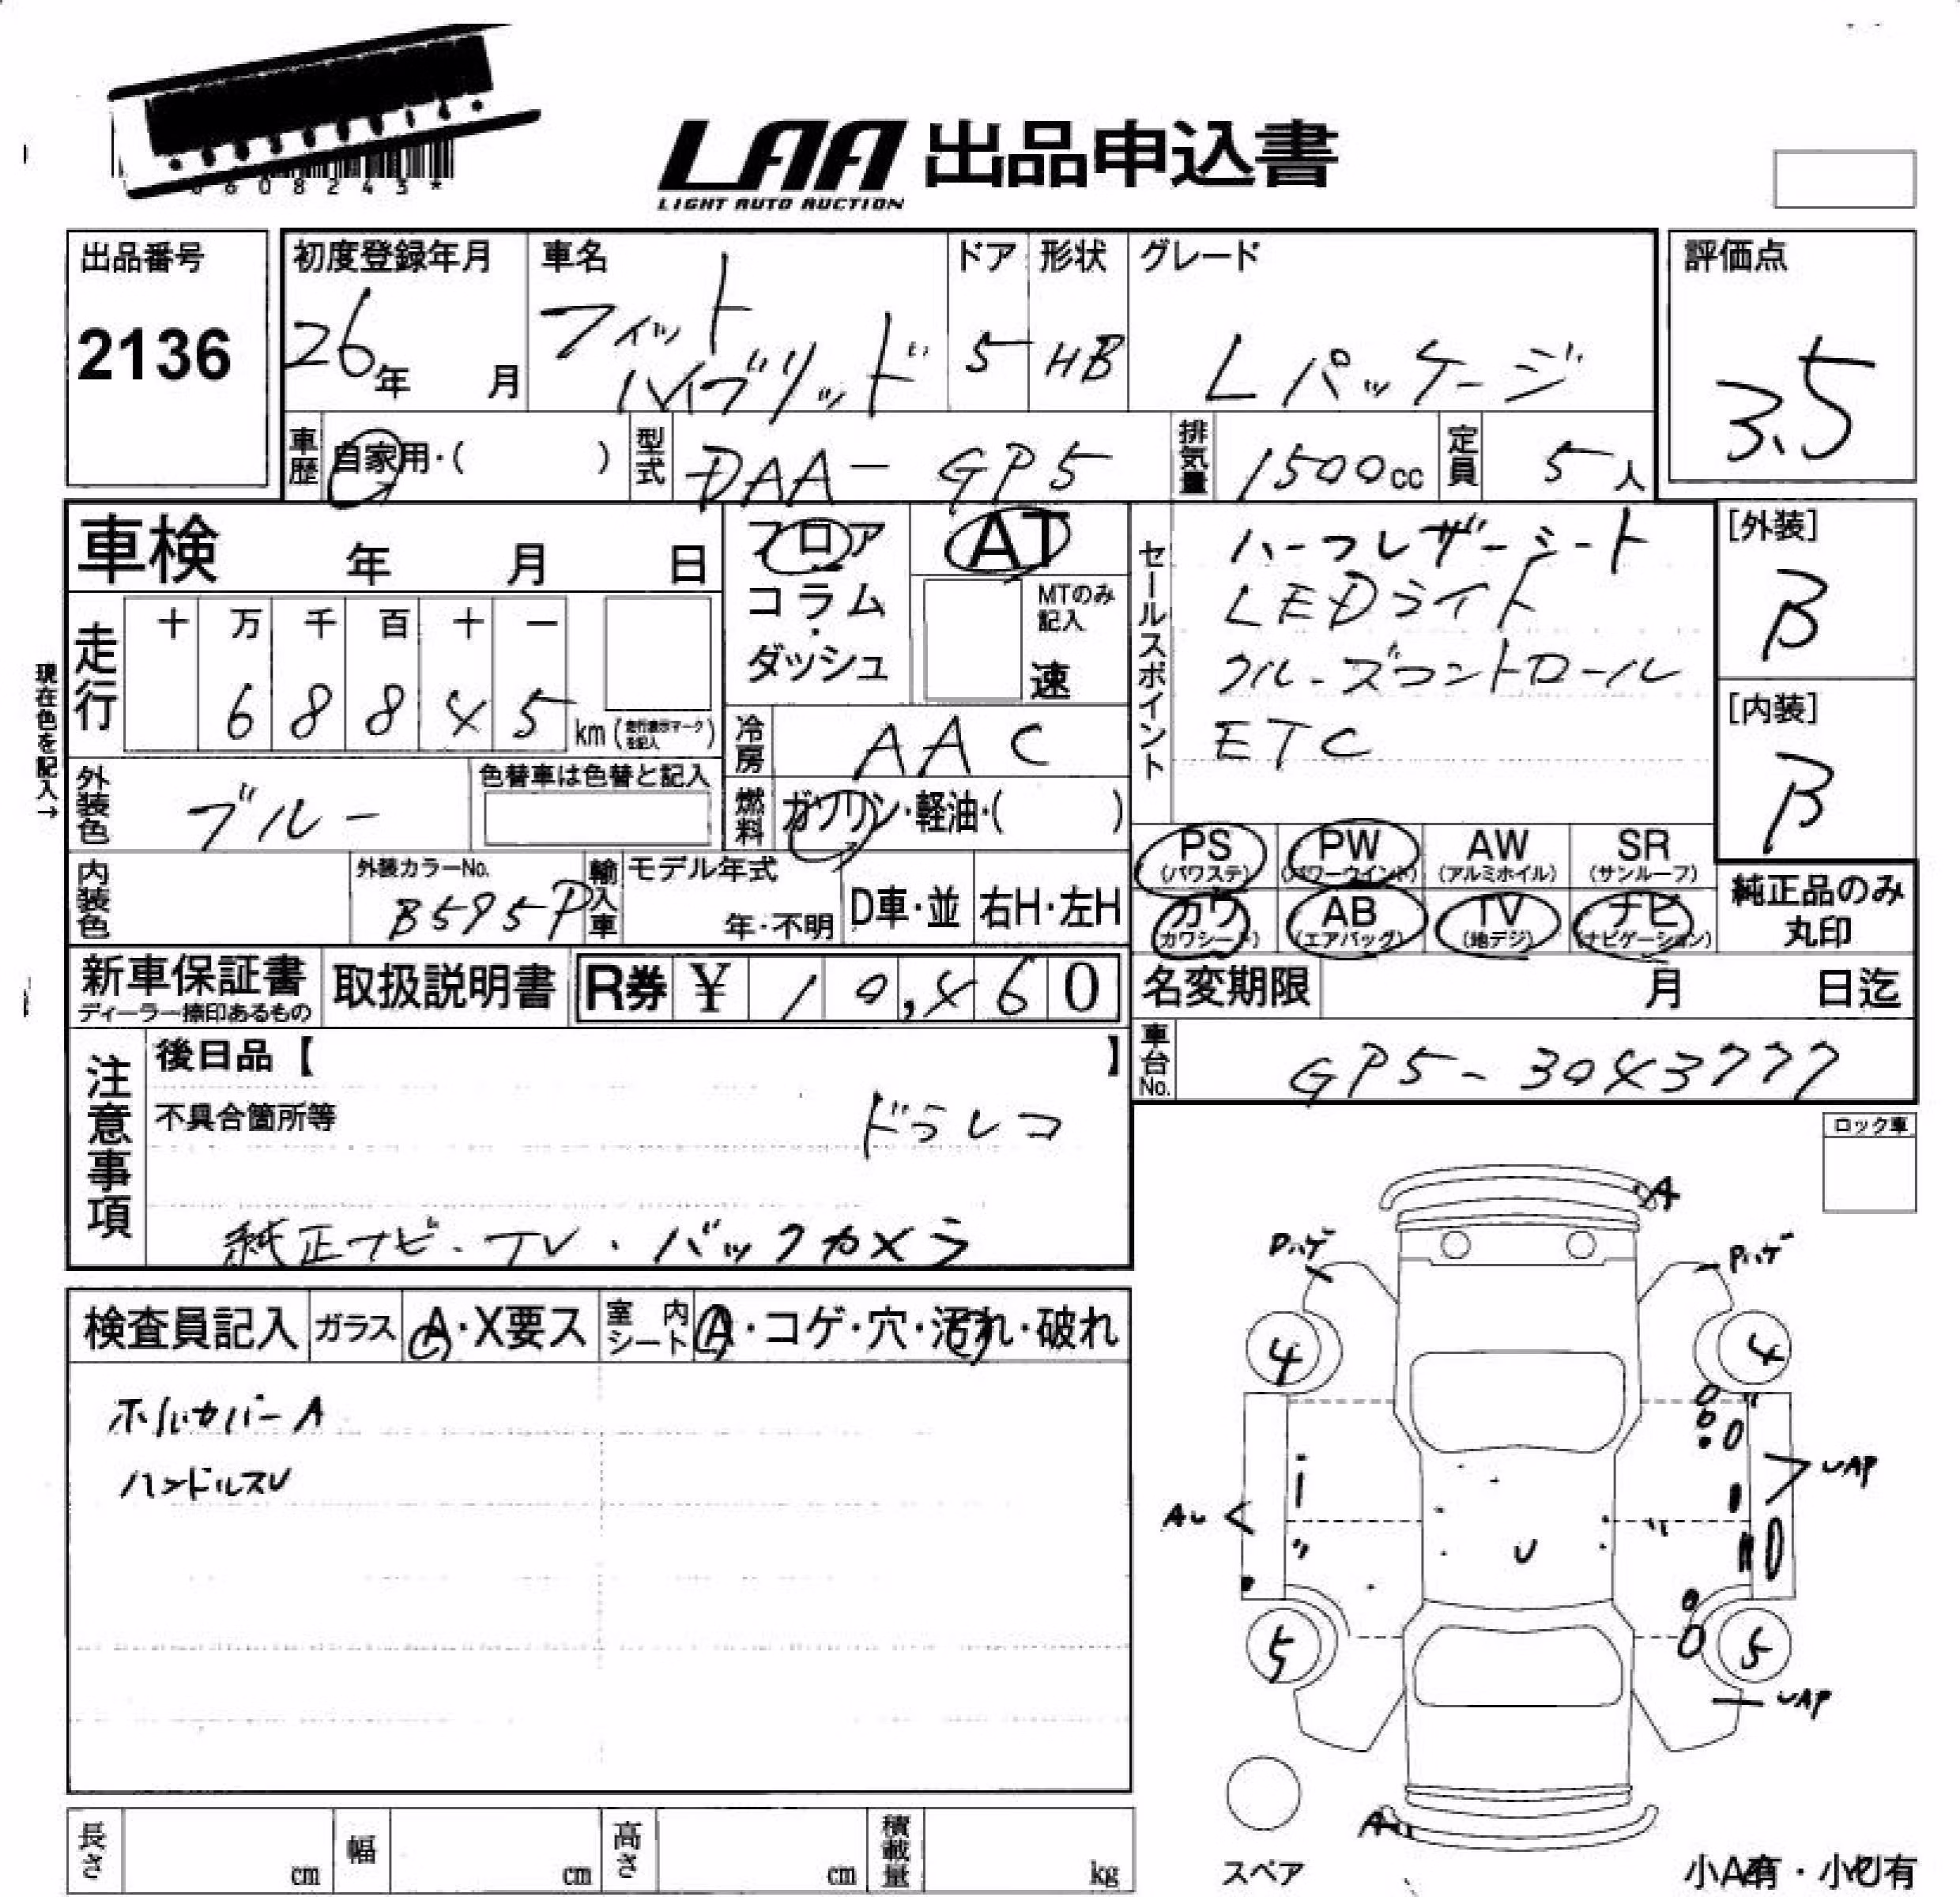 6608243*
LAA 出品申込書
LIGHT AUTO AUCTION
出品番号
2136
初度登録年月
26年 月
車名
フィット
ハイブリッド
ドア
5
形状
HB
グレード
Lパッケージ
評価点
3.5
車歴
自家用・( )
型式
DAA-GP5
排気量
1500cc
定員
5人
車検 年 月 日
フロア
コラム
・
ダッシュ
AT
MTのみ
記入
速
セールスポイント
ハーフレザーシート
LEDライト
クルーズコントロール
ETC
[外装]
B
[内装]
B
現在色を記入→
走行
十 万 千 百 十 一
6 8 8 4 5 km (走行表示マークを記入)
冷房
AAC
外装色
ブルー
色替車は色替と記入
燃料
ガソリン・軽油・( )
PS
(パワステ)
PW
(パワーウインド)
AW
(アルミホイル)
SR
(サンルーフ)
カワ
(カワシート)
AB
(エアバッグ)
TV
(地デジ)
ナビ
(ナビゲーション)
純正品のみ
丸印
内装色
外装カラーNo.
B595P
輸入車
モデル年式
年・不明
D車・並
右H・左H
新車保証書
ディーラー捺印あるもの
取扱説明書
R券 ¥ 10,460
名変期限 月 日迄
車台No.
GP5-3043777
注意事項
後日品【 】
不具合箇所等
ドラレコ
純正ナビ・TV・バックカメラ
ロック車
検査員記入
ガラス
A・X要ス
室内シート
A・コゲ・穴・汚れ・破れ
ホイルカバーA
ハンドルスU
A
Pハゲ
Pハゲ
4
4
UAP
AU
U
5
5
UAP
A
スペア
小A有・小U有
長さ cm
幅 cm
高さ cm
積載量 kg